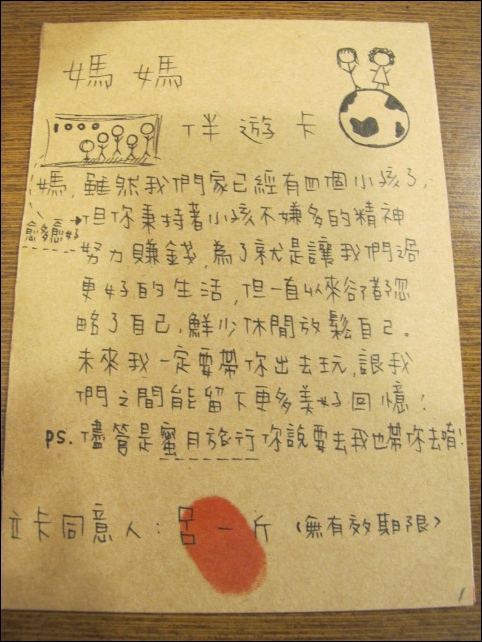 媽媽
1000
伴遊卡
媽,雖然我們家已經有四個小孩了,
但你秉持著小孩不嫌多的精神
愈多愈好
努力賺錢,為了就是讓我們過
更好的生活,但一直以來你都忽
略了自己,鮮少休閒放鬆自己。
未來我一定要帶你出去玩,讓我
們之間能留下更多美好回憶!
ps.儘管是蜜月旅行你說要去我也帶你去唷!
立卡同意人:呂一斤(無有效期限)